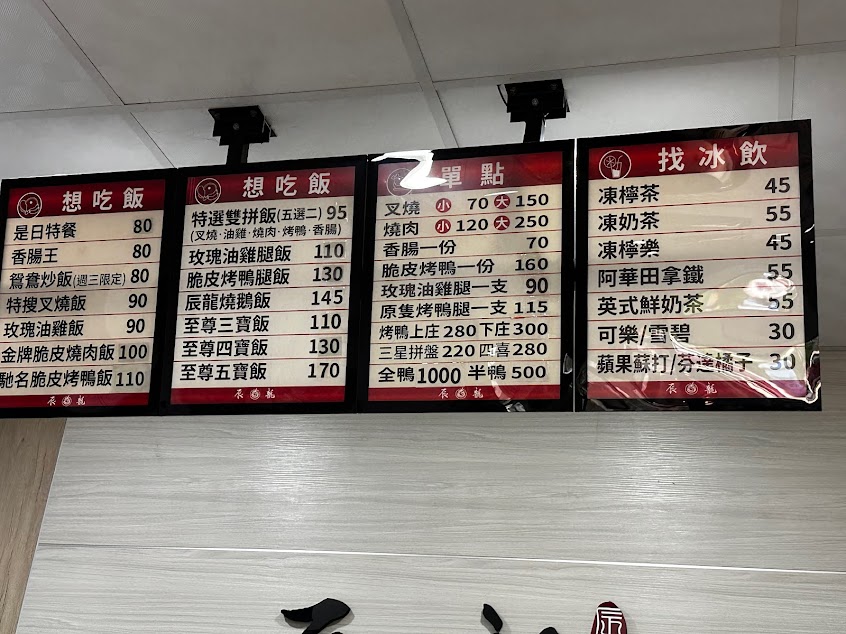 想吃飯
是日特餐 80
香腸王 80
鴛鴦炒飯(週三限定) 80
特搜叉燒飯 90
玫瑰油雞飯 90
金牌脆皮燒肉飯 100
馳名脆皮烤鴨飯 110
辰 龍
想吃飯
特選雙拼飯(五選二) 95
(叉燒·油雞·燒肉·烤鴨·香腸)
玫瑰油雞腿飯 110
脆皮烤鴨腿飯 130
辰龍燒鵝飯 145
至尊三寶飯 110
至尊四寶飯 130
至尊五寶飯 170
辰 龍
單點
叉燒 小 70 大 150
燒肉 小 120 大 250
香腸一份 70
脆皮烤鴨一份 160
玫瑰油雞腿一支 90
原隻烤鴨腿一支 115
烤鴨上庄 280 下庄 300
三星拼盤 220 四喜 280
全鴨 1000 半鴨 500
辰 龍
找冰飲
凍檸茶 45
凍奶茶 55
凍檸樂 45
阿華田拿鐵 55
英式鮮奶茶 55
可樂/雪碧 30
蘋果蘇打/芬達橘子 30
辰 龍
辰